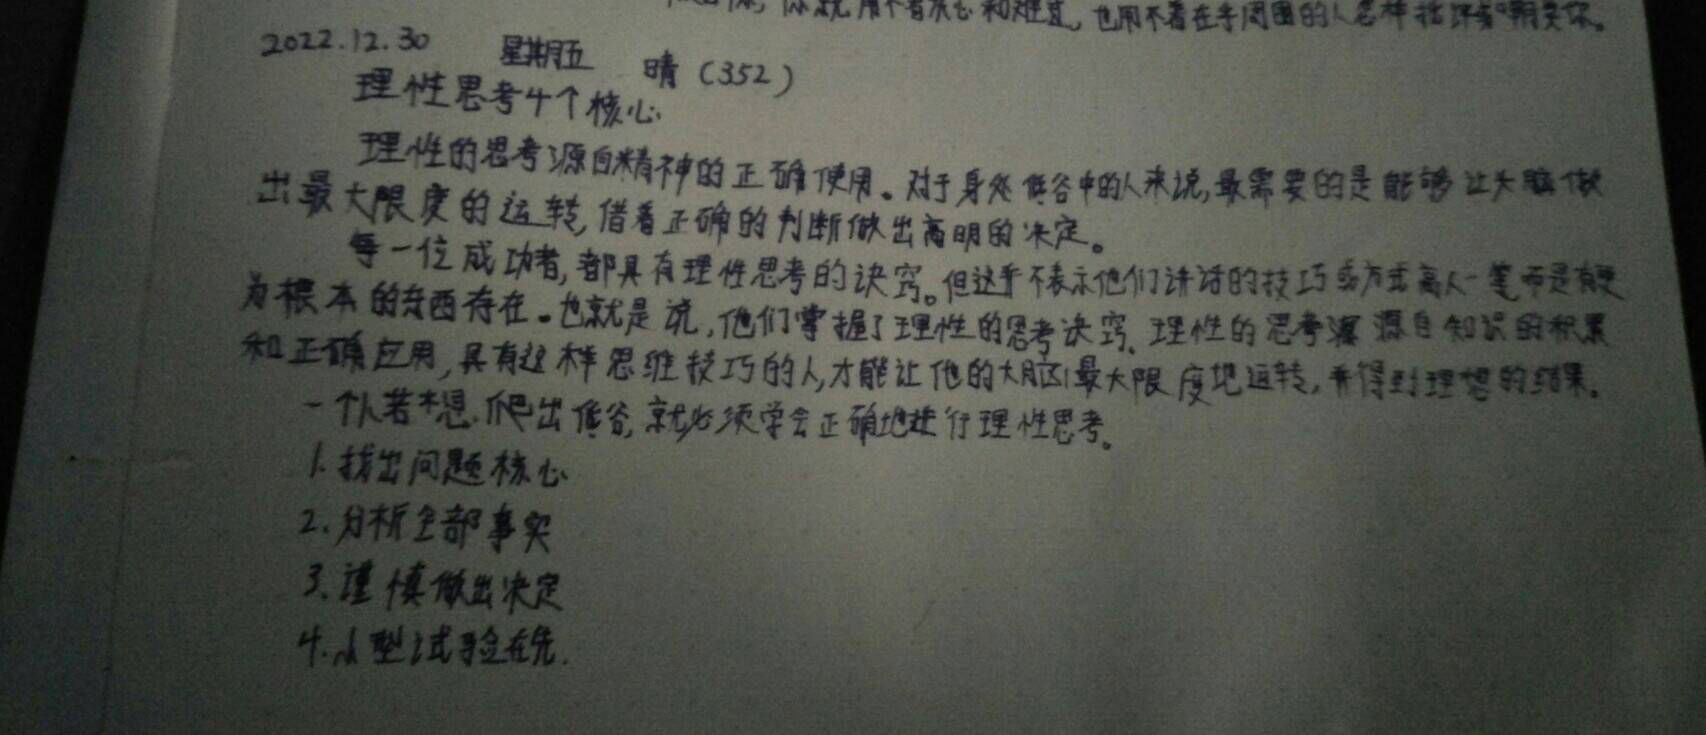 你就用不着灰心和难过，也用不着在乎周围的人怎样批评与嘲笑你。
2022.12.30 星期五 晴（352）
理性思考4个核心
理性的思考源自精神的正确使用。对于身处低谷中的人来说，最需要的是能够让大脑做
出最大限度的运转，借着正确的判断做出高明的决定。
每一位成功者，都具有理性思考的诀窍。但这并不表示他们讲话的技巧或方式高人一筆而是有更
为根本的东西存在。也就是说，他们掌握了理性的思考诀窍。理性的思考源自知识的积累
和正确应用，具有这样思维技巧的人，才能让他的大脑最大限度地运转，并得到理想的结果。
一个人若想爬出低谷，就必须学会正确地进行理性思考。
1.找出问题核心
2.分析全部事实
3.谨慎做出决定
4.小型试验在先.